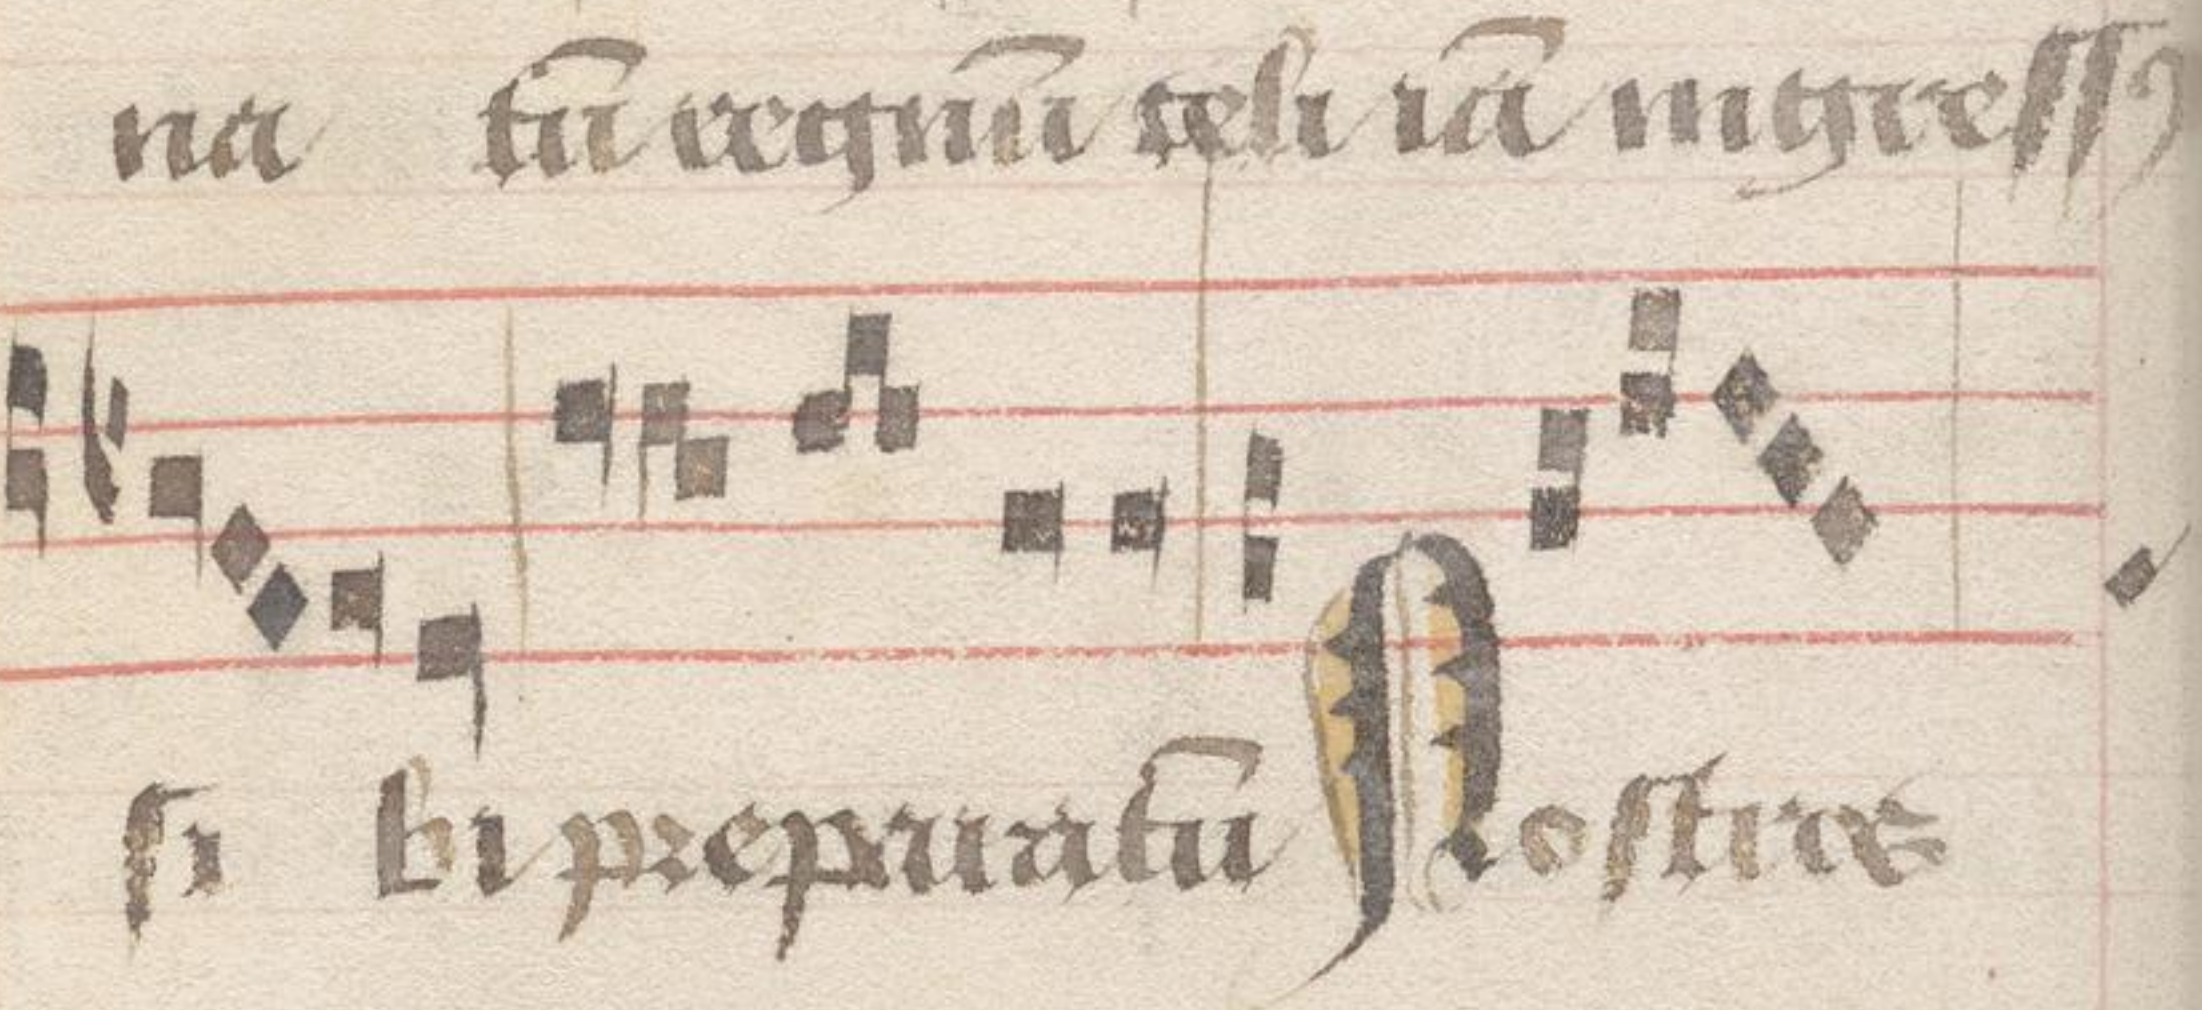 na tū regnū celi iā ingressꝯ
si bi preparatū Nostre